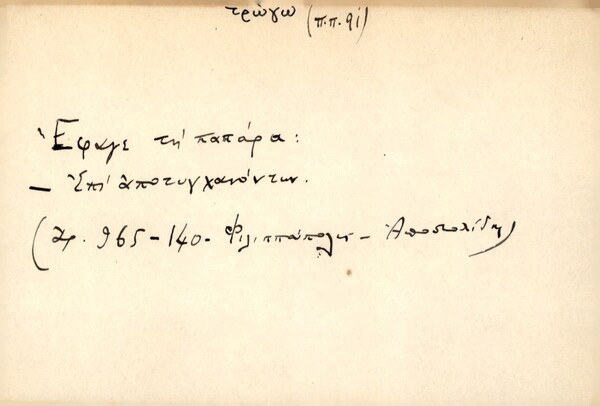 τρώγω (π.π. 91)
Ἔφαγε τὴ παπάρα:
— Ἐπὶ ἀποτυγχανόντων.
(Ἀρ. 965-140- Φιλιππούπολις - Ἀποστολίδης)